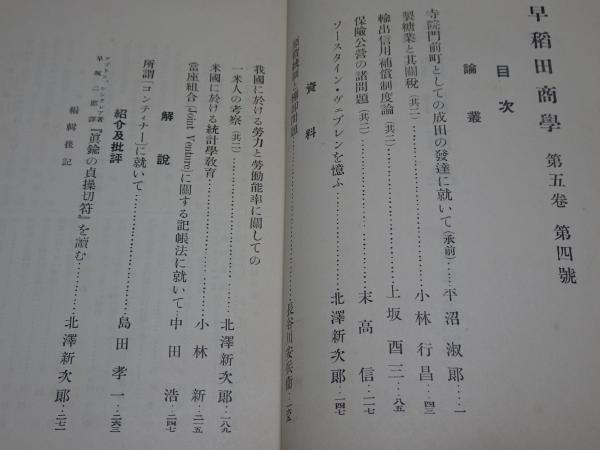 早稻田商學 第五卷 第四號
目次
論叢
寺院門前町としての成田の發達に就いて(承前)……平沼淑郎…一
製糖業と其關稅(其二)……小林行昌…四三
輸出信用補償制度論(其二)……上坂酉三…八五
保險公營の諸問題(其二)……末高信…二一七
ソースタイン・ヴェブレンを憶ふ……北澤新次郎…一四七
長谷川安兵衞
資料
我國に於ける勞力と勞働能率に關しての
一米人の考察(其二)……北澤新次郎…一八九
米國に於ける統計學敎育……小林新…二一五
當座組合(Joint Venture)に關する記帳法に就いて…中田浩…二四七
解說
所謂「コンティナー」に就いて……島田孝一…二六三
紹介及批評
アプトン、シンクレア著
早坂二郎譯
『眞鍮の貞操切符』を讀む……北澤新次郎…二七一
編輯後記